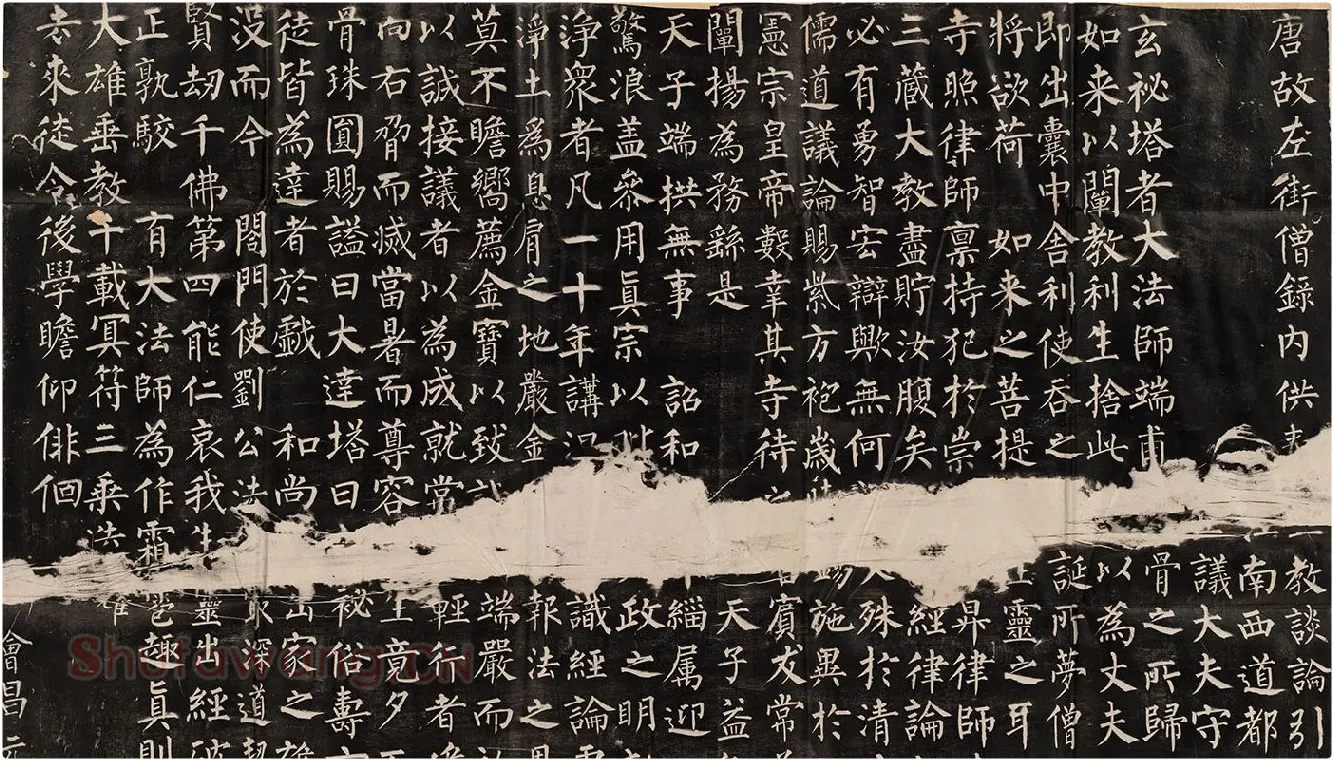 唐故左街僧錄内供
玄祕塔者大法師端甫
如来以闡教利生捨此
即出囊中舍利使吞之
將欲荷 如来之菩提
寺照律師禀持犯於崇
三藏大教盡貯汝腹矣
必有勇智宏辯歟無何
儒道議論賜紫方袍歲
憲宗皇帝數幸其寺待
闡揚為務繇是
天子端拱無事 詔和
驚浪盖叅用真宗以
浄衆者凡一十年講
淨土為息肩之地嚴金
莫不瞻嚮薦金寶以致
以誠接議者以為成就常
向右脅而滅當暑而尊容
骨珠圓賜謚曰大達塔曰
徒皆為達者於戲 和尚
没而今 閤門使劉公法
賢劫千佛第四能仁哀我
正孰駮 有大法師為作霜
大雄垂教千載冥符三乗
去來徒令後學瞻仰俳佪
教談論引
南西道都
議大夫守
骨之所歸
以為丈夫
誕所夢僧
靈之耳
昇律師
經律論
殊於清
施異於
賔友常
天子益
緇属迎
政之明
識經論
報法之
端嚴而
輕行者
竟夕
祕俗壽
出家之
深道
靈出經破
趣真則
會昌
Shufawang.CN